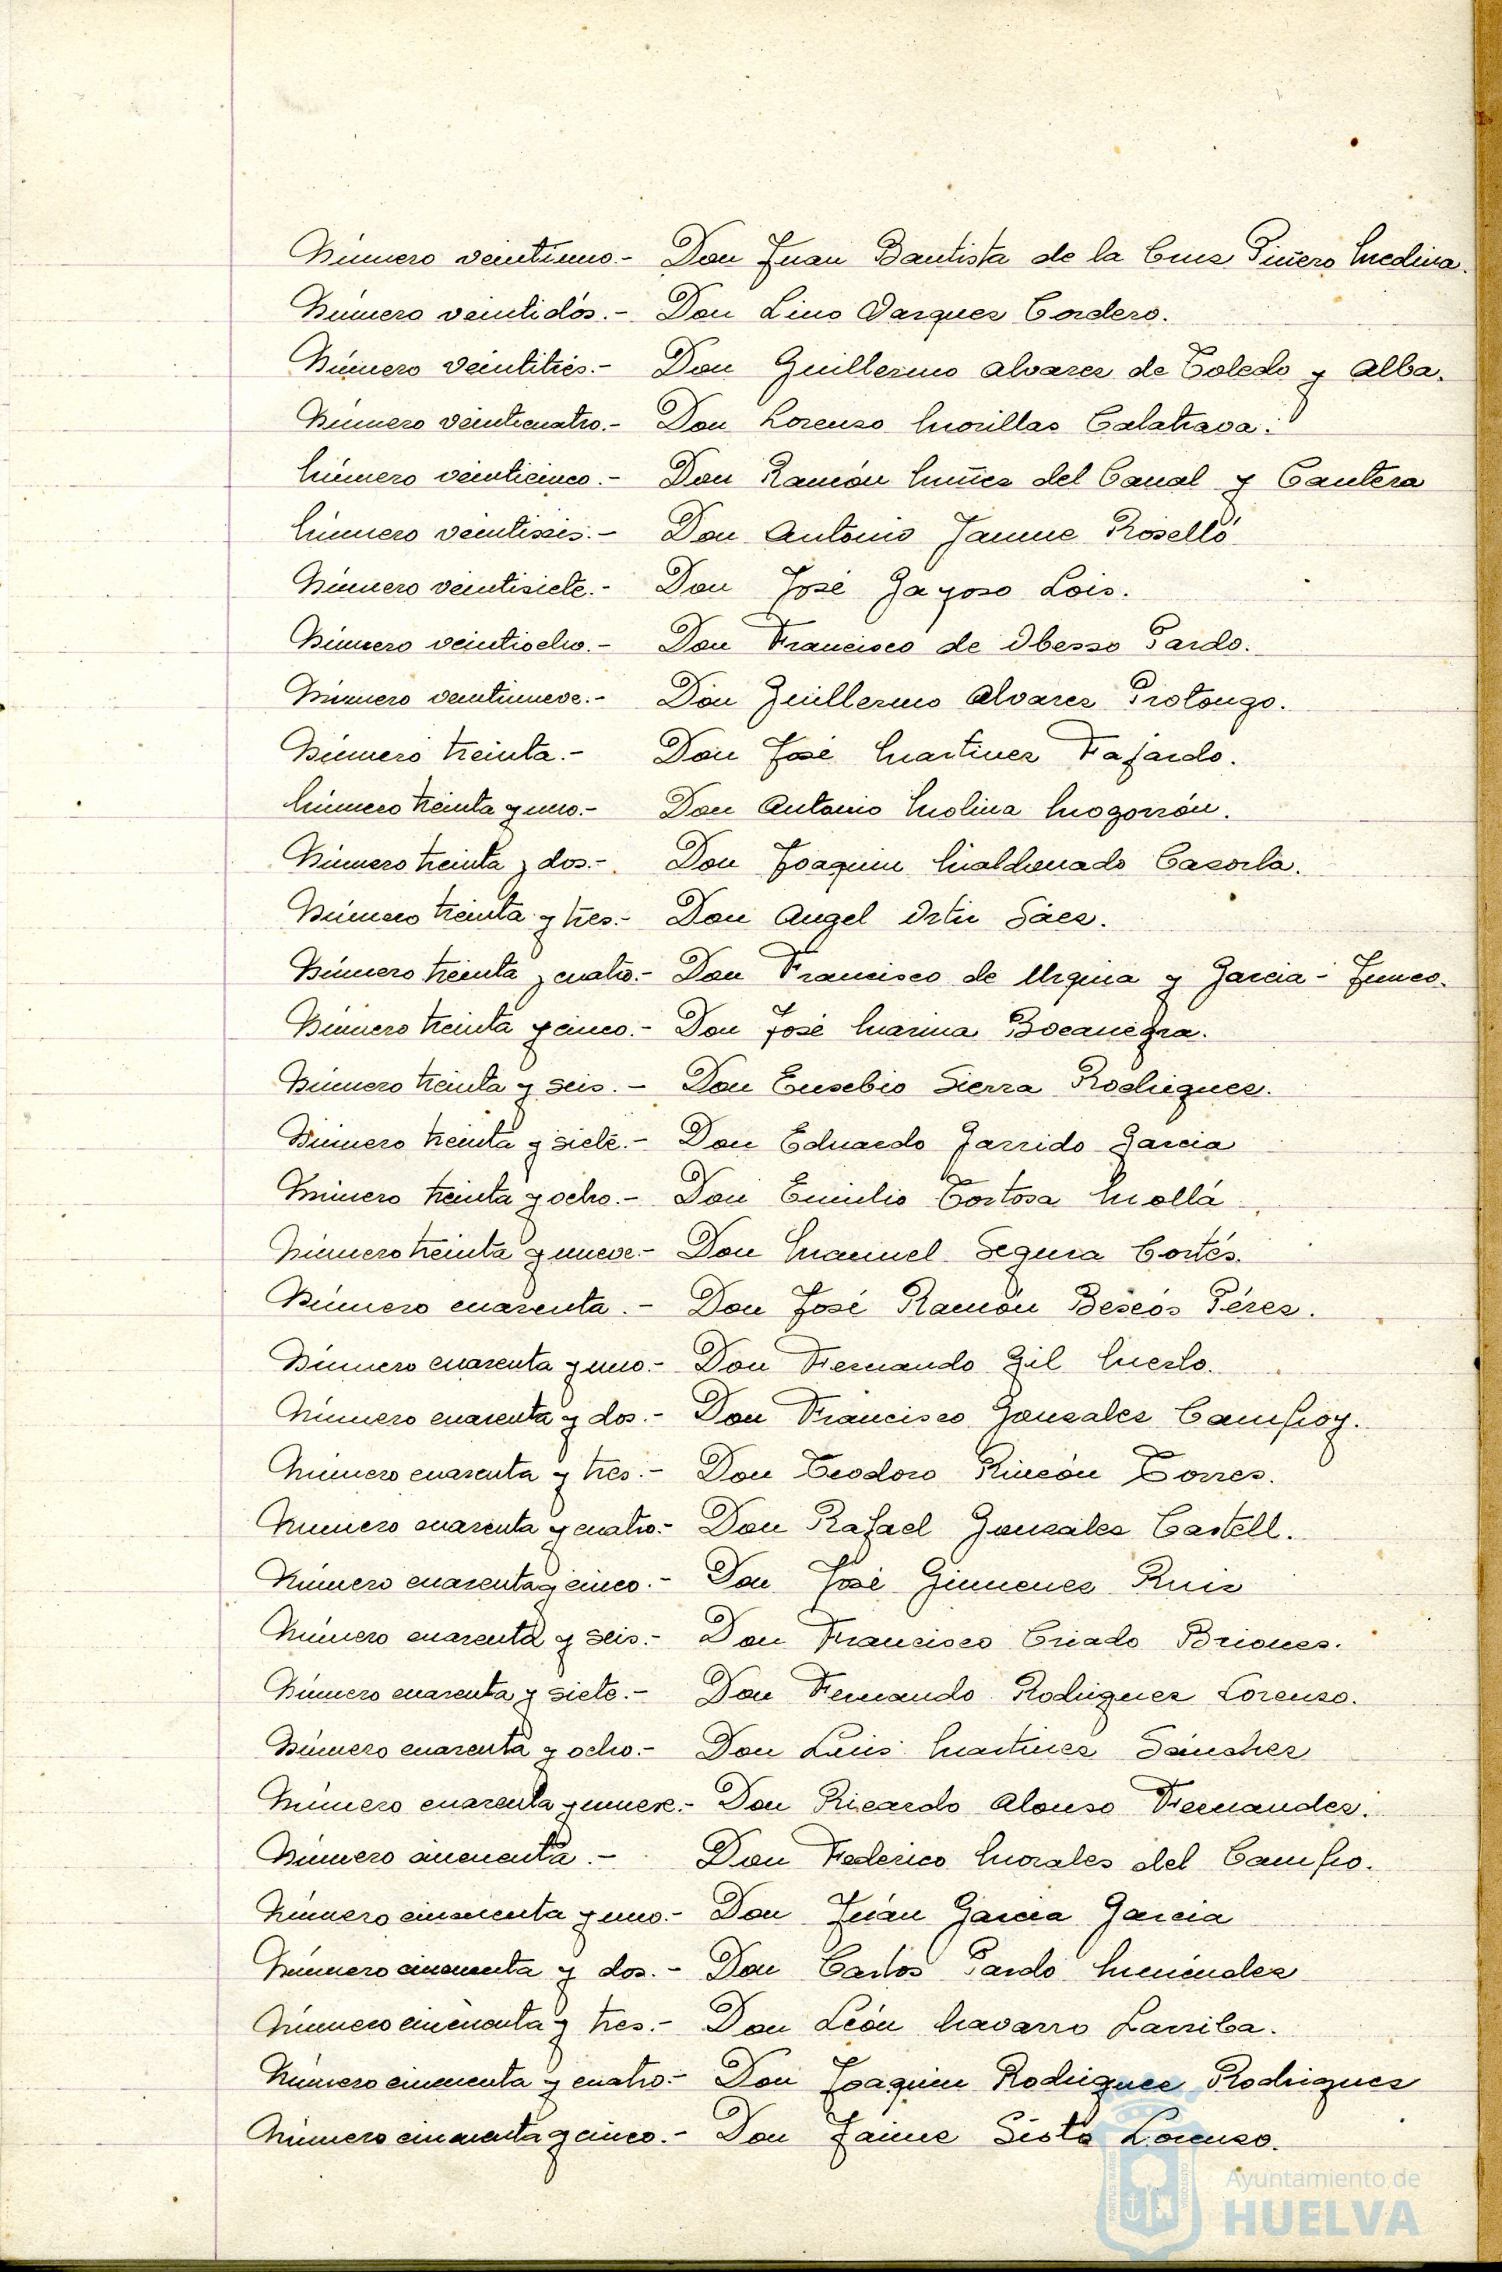 Número veintiuno.- Don Juan Bautista de la Cruz Piñero Medina.
Número veintidós.- Don Lino Vazquez Cordero.
Número veintitrés.- Don Guillermo Alvarez de Toledo y Alba.
Número veinticuatro.- Don Lorenzo Morillas Calatrava.
Número veinticinco.- Don Ramón Nuñez del Canal y Cantera
Número veintiseis.- Don Antonio Jaume Roselló
Número veintisiete.- Don José Gayoso Lois.
Número veintiocho.- Don Francisco de Obesso Pardo.
Número veintinueve.- Don Guillermo Alvarez Prolongo.
Número treinta.- Don José Martinez Fajardo.
Número treinta y uno.- Don Antonio Molina Mogorrón.
Número treinta y dos.- Don Joaquin Maldonado Cazorla.
Número treinta y tres.- Don Angel Ortin Sáez.
Número treinta y cuatro.- Don Francisco de Urquia y Garcia - Junco.
Número treinta y cinco.- Don José Marina Bocanegra.
Número treinta y seis.- Don Eusebio Sierra Rodriguez.
Número treinta y siete.- Don Eduardo Garrido Garcia
Número treinta y ocho.- Don Emilio Tortosa Mollá
Número treinta y nueve.- Don Manuel Segura Cortés.
Número cuarenta.- Don José Ramón Bescós Pérez.
Número cuarenta y uno.- Don Fernando Gil Merlo.
Número cuarenta y dos.- Don Francisco Gonzalez Campoy.
Número cuarenta y tres.- Don Teodoro Rincón Torres.
Número cuarenta y cuatro.- Don Rafael Gonzalez Castell.
Número cuarenta y cinco.- Don José Gimenez Ruiz
Número cuarenta y seis.- Don Francisco Criado Briones.
Número cuarenta y siete.- Don Fernando Rodriguez Lorenzo.
Número cuarenta y ocho.- Don Luis Martinez Sánchez
Número cuarenta y nueve.- Don Ricardo Alonso Fernandez.
Número cincuenta.- Don Federico Morales del Campo.
Número cincuenta y uno.- Don Juán Garcia Garcia
Número cincuenta y dos.- Don Carlos Pardo Menéndez
Número cincuenta y tres.- Don León Navarro Larriba.
Número cincuenta y cuatro.- Don Joaquin Rodriguez Rodriguez
Número cincuenta y cinco.- Don Jaime Sisto Lorenzo.
Ayuntamiento de
HUELVA